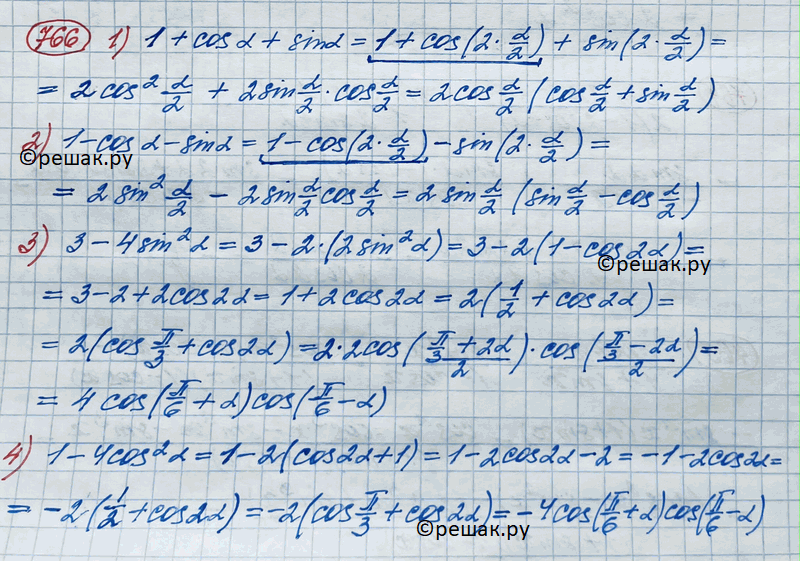 766 1) 1 + cos α + sin α = 1 + cos(2 · α/2) + sin(2 · α/2) =
= 2 cos² α/2 + 2 sin α/2 · cos α/2 = 2 cos α/2 (cos α/2 + sin α/2)
2) 1 - cos α - sin α = 1 - cos(2 · α/2) - sin(2 · α/2) =
©решак.ру
= 2 sin² α/2 - 2 sin α/2 cos α/2 = 2 sin α/2 (sin α/2 - cos α/2)
3) 3 - 4 sin² α = 3 - 2 · (2 sin² α) = 3 - 2 (1 - cos 2α) =
©решак.ру
= 3 - 2 + 2 cos 2α = 1 + 2 cos 2α = 2 (1/2 + cos 2α) =
= 2 (cos π/3 + cos 2α) = 2 · 2 cos ((π/3 + 2α)/2) · cos ((π/3 - 2α)/2) =
= 4 cos(π/6 + α) cos(π/6 - α)
4) 1 - 4 cos² α = 1 - 2 (cos 2α + 1) = 1 - 2 cos 2α - 2 = -1 - 2 cos 2α =
= -2 · (1/2 + cos 2α) = -2 (cos π/3 + cos 2α) = -4 cos(π/6 + α) cos(π/6 - α)
©решак.ру